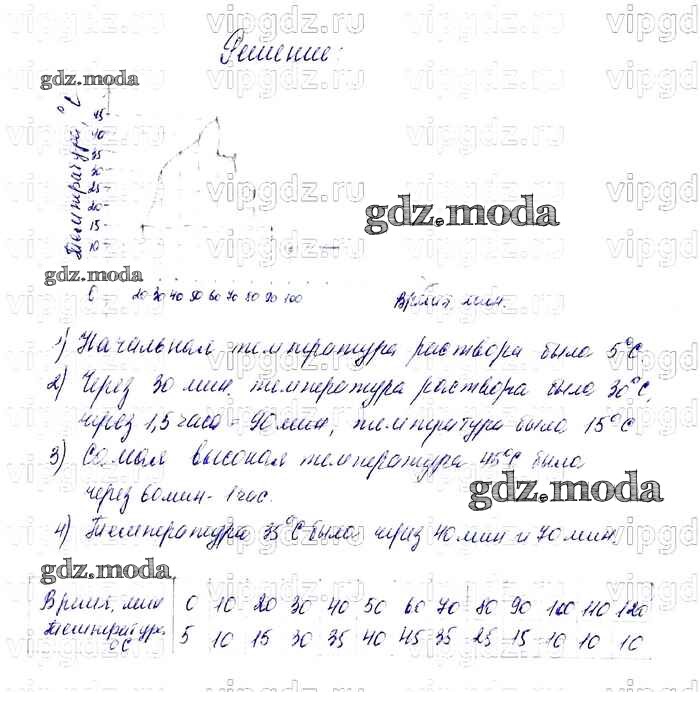 Решение:
gdz.moda
Температура, °C
45
40
35
30
25
20
15
10
gdz.moda
gdz.moda
0 20 30 40 50 60 70 80 90 100
Время, мин.
1) Начальная температура раствора была 5°C.
2) Через 30 мин. температура раствора была 30°C,
через 1,5 часа - 90 мин, температура была 15°C
3) Самая высокая температура 45°C была
через 60 мин - 1 час.
gdz.moda
4) Температура 35°C была через 40 мин и 70 мин.
gdz.moda
Время, мин 0 10 20 30 40 50 60 70 80 90 100 110 120
Температура °C 5 10 15 30 35 40 45 35 25 15 10 10 10
vipgdz.ru